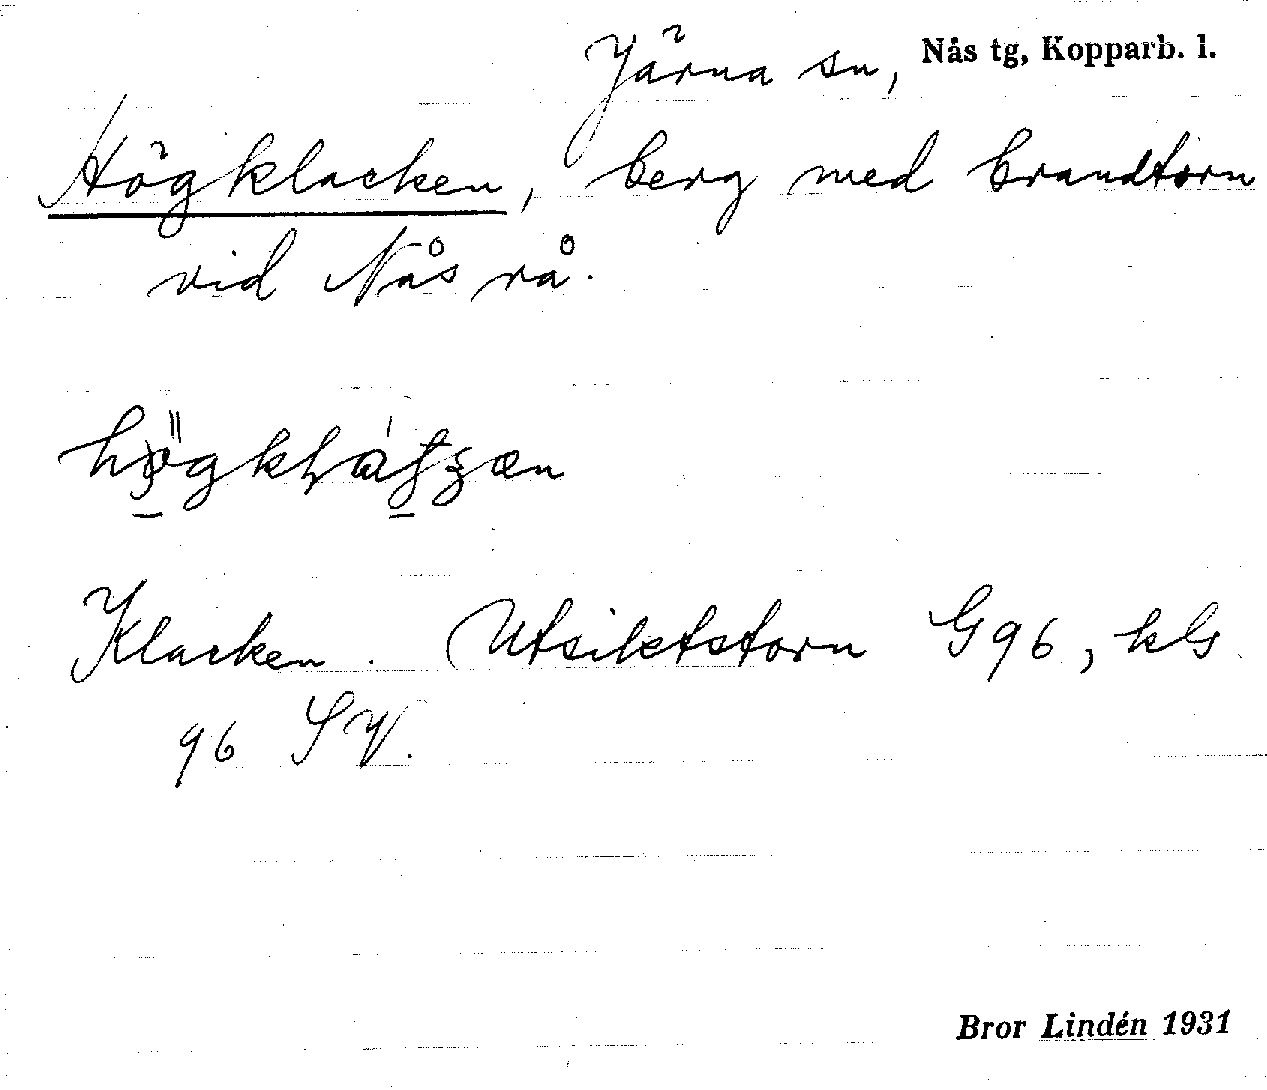 Järna sn, Nås tg, Kopparb. l.
Högklacken, berg med brandtorn
vid Nås rå.
Klacken. Utsiktstorn G96, kls
96 SV.
Bror Lindén 1931